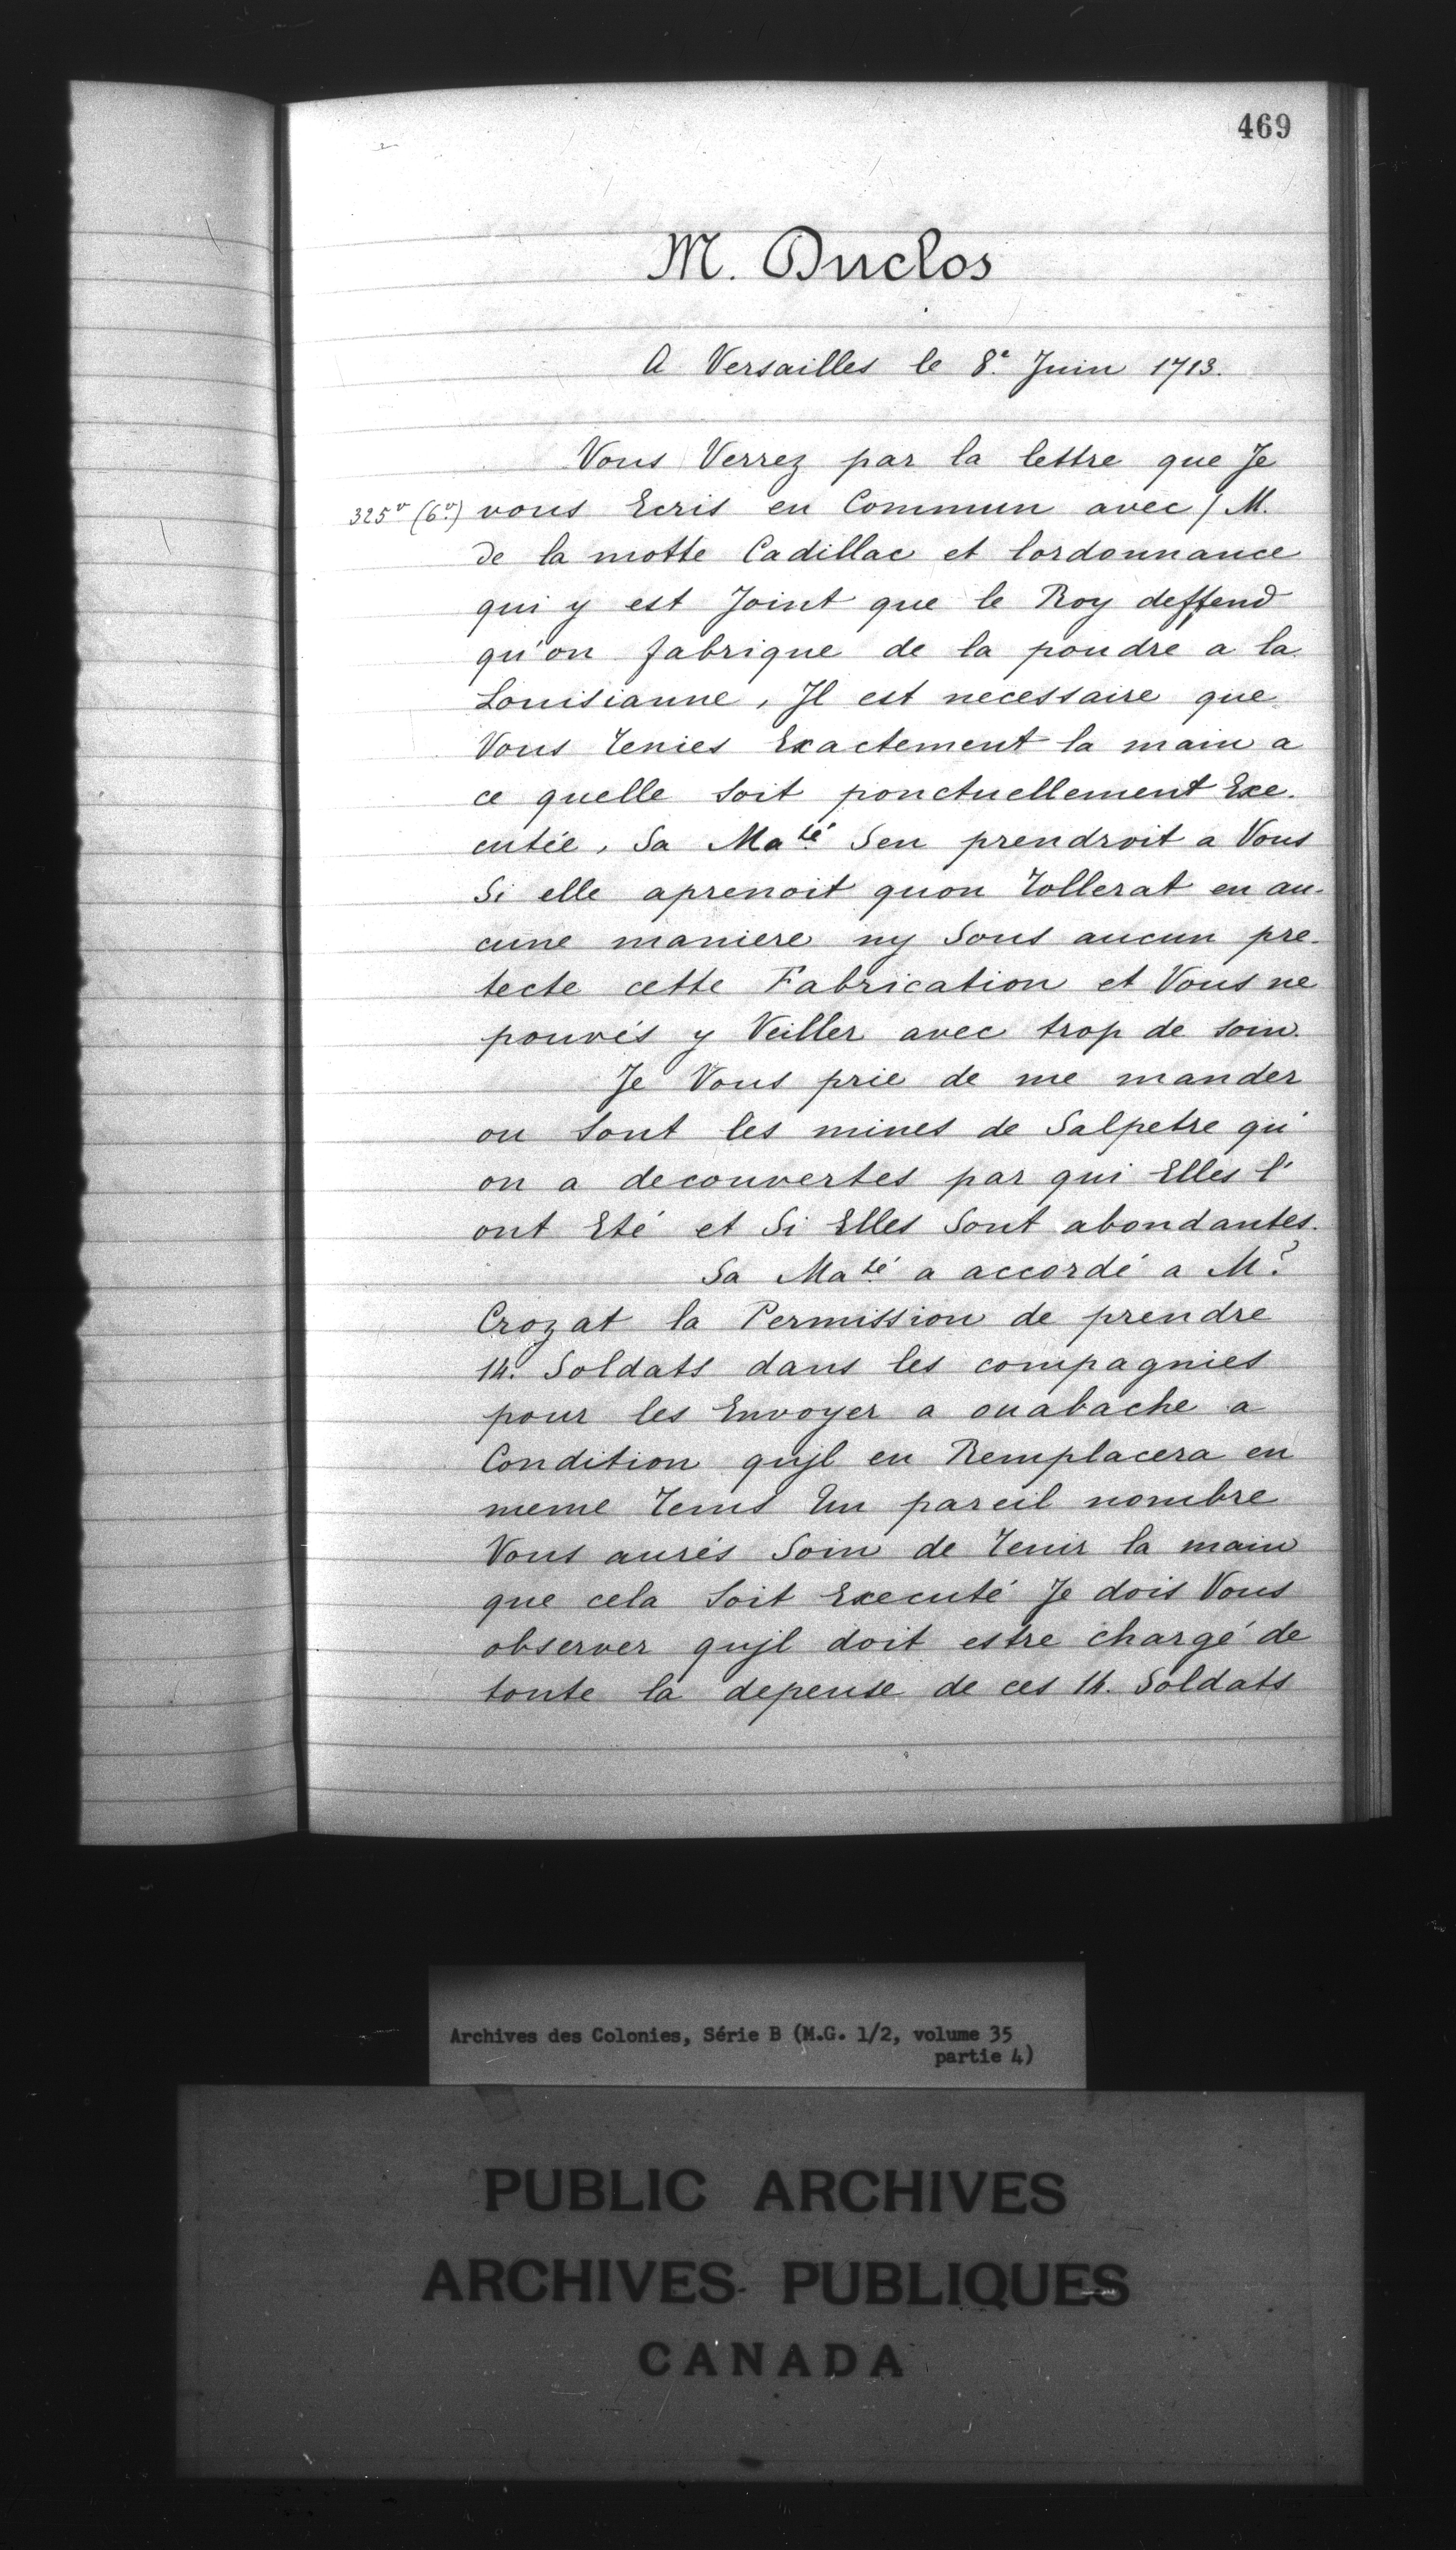 469
M. Duclos
A Versailles le 8e. Juin 1713.
Vous Verrez par la lettre que Je
325v (6v.) vous Ecris en Commun avec / M.
de la motte Cadillac et lordonnance
qui y est Joint que le Roy deffend
qu'on fabrique de la poudre a la
Louisianne, Il est necessaire que
Vous tenies Exactement la main a
ce quelle soit ponctuellement Exe-
cutée, Sa Maté Sen prendroit a Vous
Si elle aprenoit quon tollerat en au-
cune maniere ny Sous aucun pre-
tecte cette Fabrication et Vous ne
pouvés y Veiller avec trop de soin.
Je Vous prie de me mander
ou sont les mines de Salpetre qu'
on a decouvertes par qui Elles l'
ont Eté et Si Elles Sont abondantes.
Sa Maté a accordé a Mr.
Crozat la Permission de prendre
14. Soldats dans les compagnies
pour les Envoyer a ouabache a
Condition qujl en Remplacera en
meme tems Un pareil nombre
Vous aurés Soin de tenir la main
que cela soit Executé Je dois Vous
observer qujl doit estre chargé de
toute la depense de ces 14. Soldats
Archives des Colonies, Série B (M.G. 1/2, volume 35
partie 4)
PUBLIC ARCHIVES
ARCHIVES PUBLIQUES
CANADA